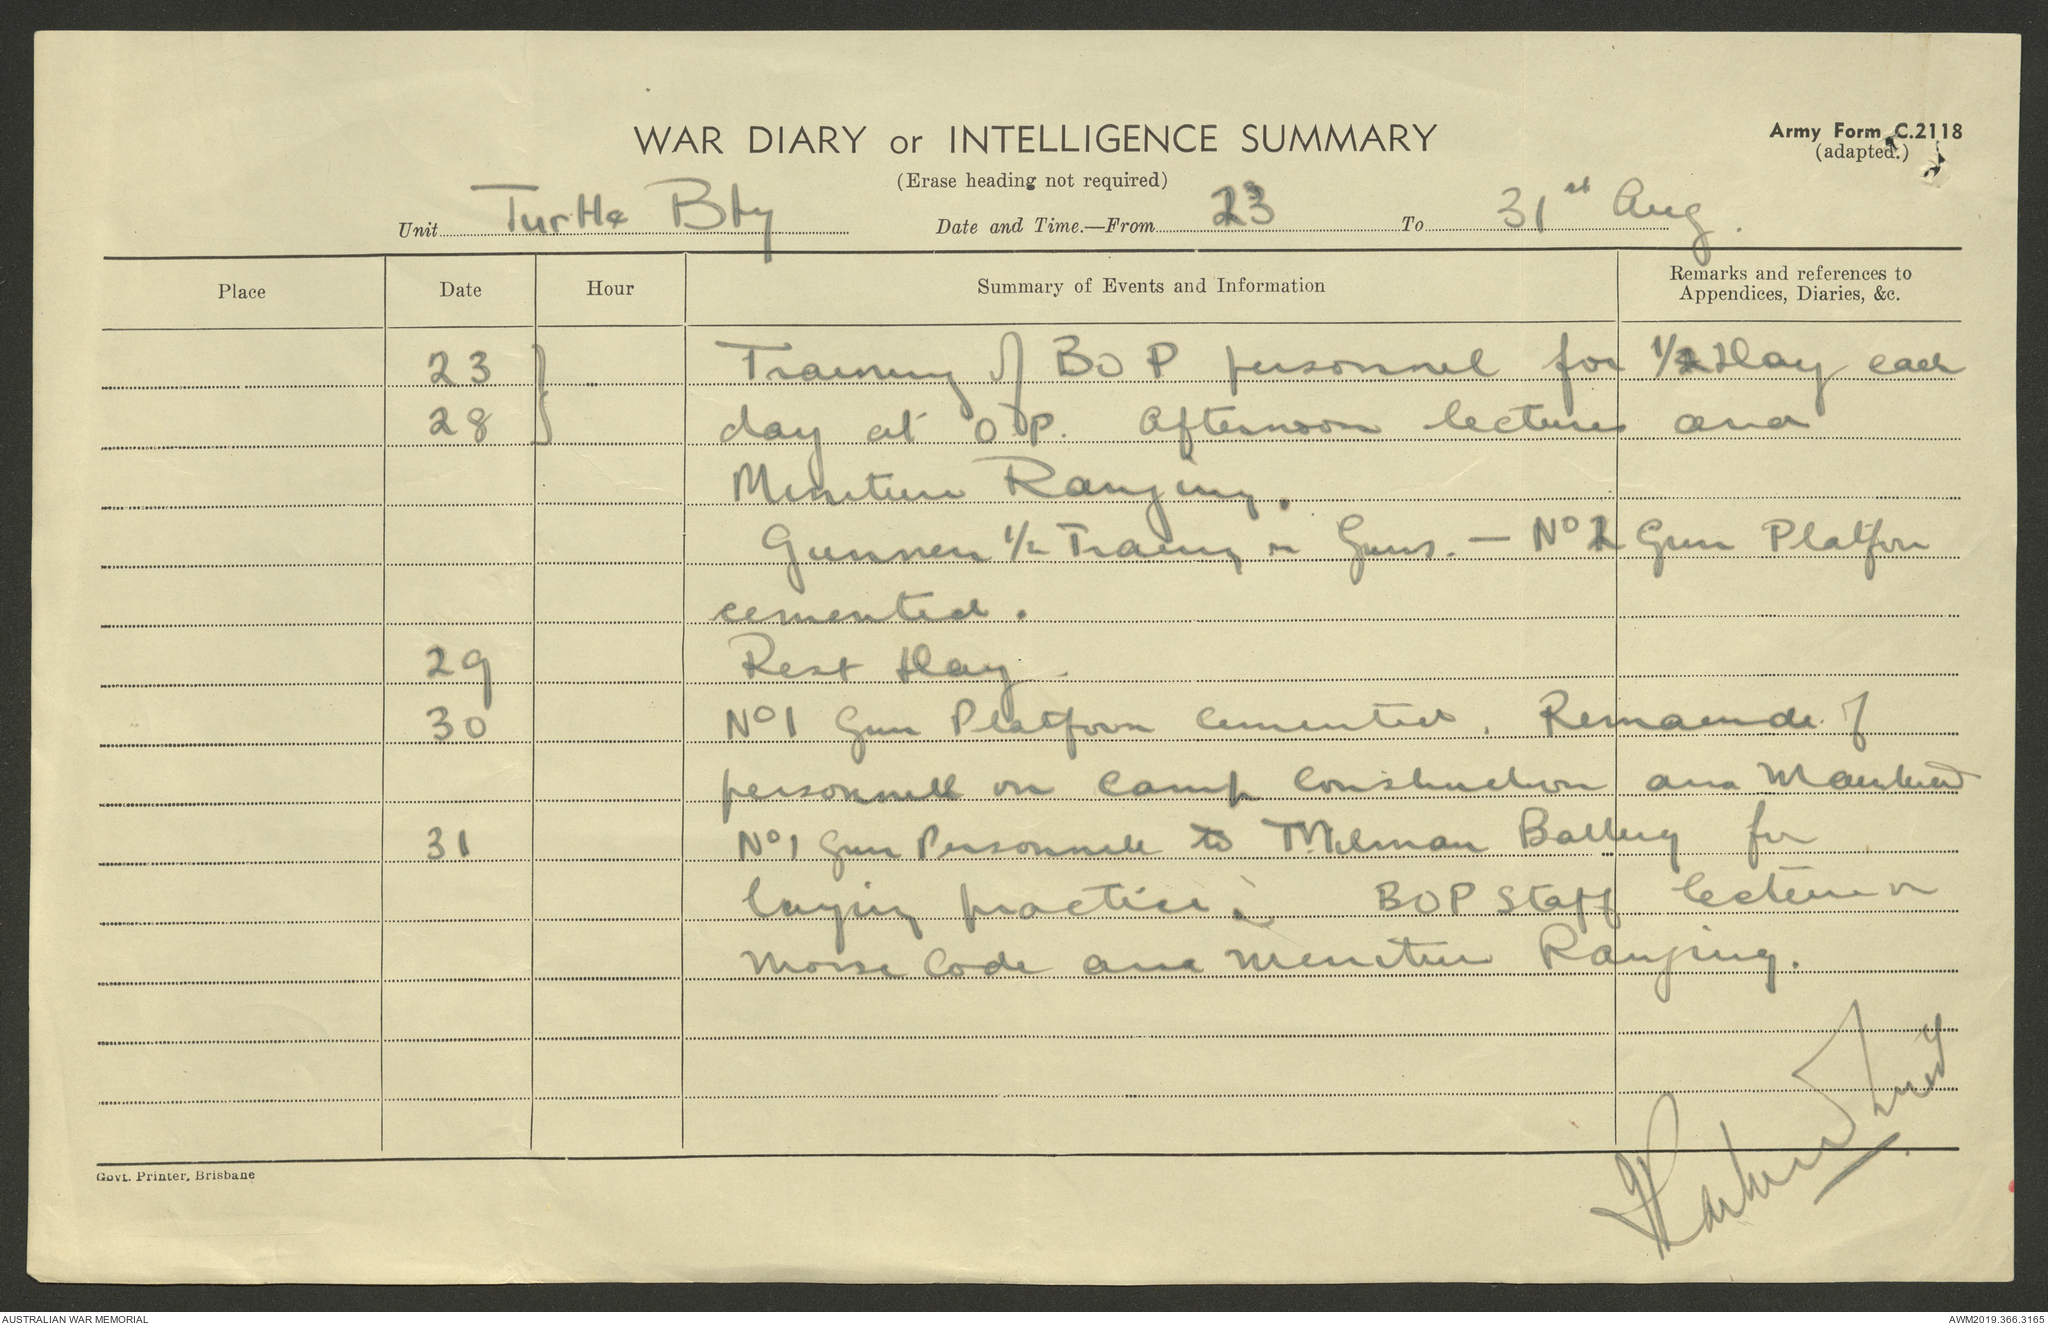 WAR DIARY or INTELLIGENCE SUMMARY
Army Form C.2118
(adapted.)
(Erase heading not required)
Unit Turtle Bty Date and Time.—From 23 To 31st Aug.
Place Date Hour Summary of Events and Information Remarks and references to
Appendices, Diaries, &c.
23 Training of BOP personnel for 1/2 day each
28 day at OP. Afternoon lectures and
Miniture Ranging.
Gunners 1/2 Training on Guns. — No 2 Gun Platform
cemented.
29 Rest day
30 No 1 Gun Platform cemented. Remainder of
personnel on camp construction and
31 No 1 Gun Personnel to Milman Battery for
laying practice. BOP Staff lecture on
Morse Code and Meniture Ranging.
Govt. Printer, Brisbane
AUSTRALIAN WAR MEMORIAL
AWM2019.366.3165